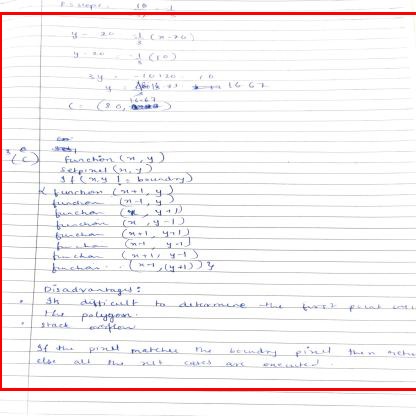 P.S slope 10
y - 20 = -1/3 (x-20)
y - 20 = -1/3 (10)
3y = -10+20 10
y 16 67
C = (30, 16.67)
(c) function (x, y)
setpixel (x, y)
If (x,y != boundry)
{ function (x+1, y)
function (x-1, y)
function (x, y+1)
function (x, y-1)
function (x+1, y+1)
function (x-1, y-1)
function (x+1, y-1)
function (x-1, (y+1)) }
Disadvantages:
• Its difficult to determine the first point
the polygon.
• stack overflow
If the pixel matches the boundry pixel then
else all the cases are executed.